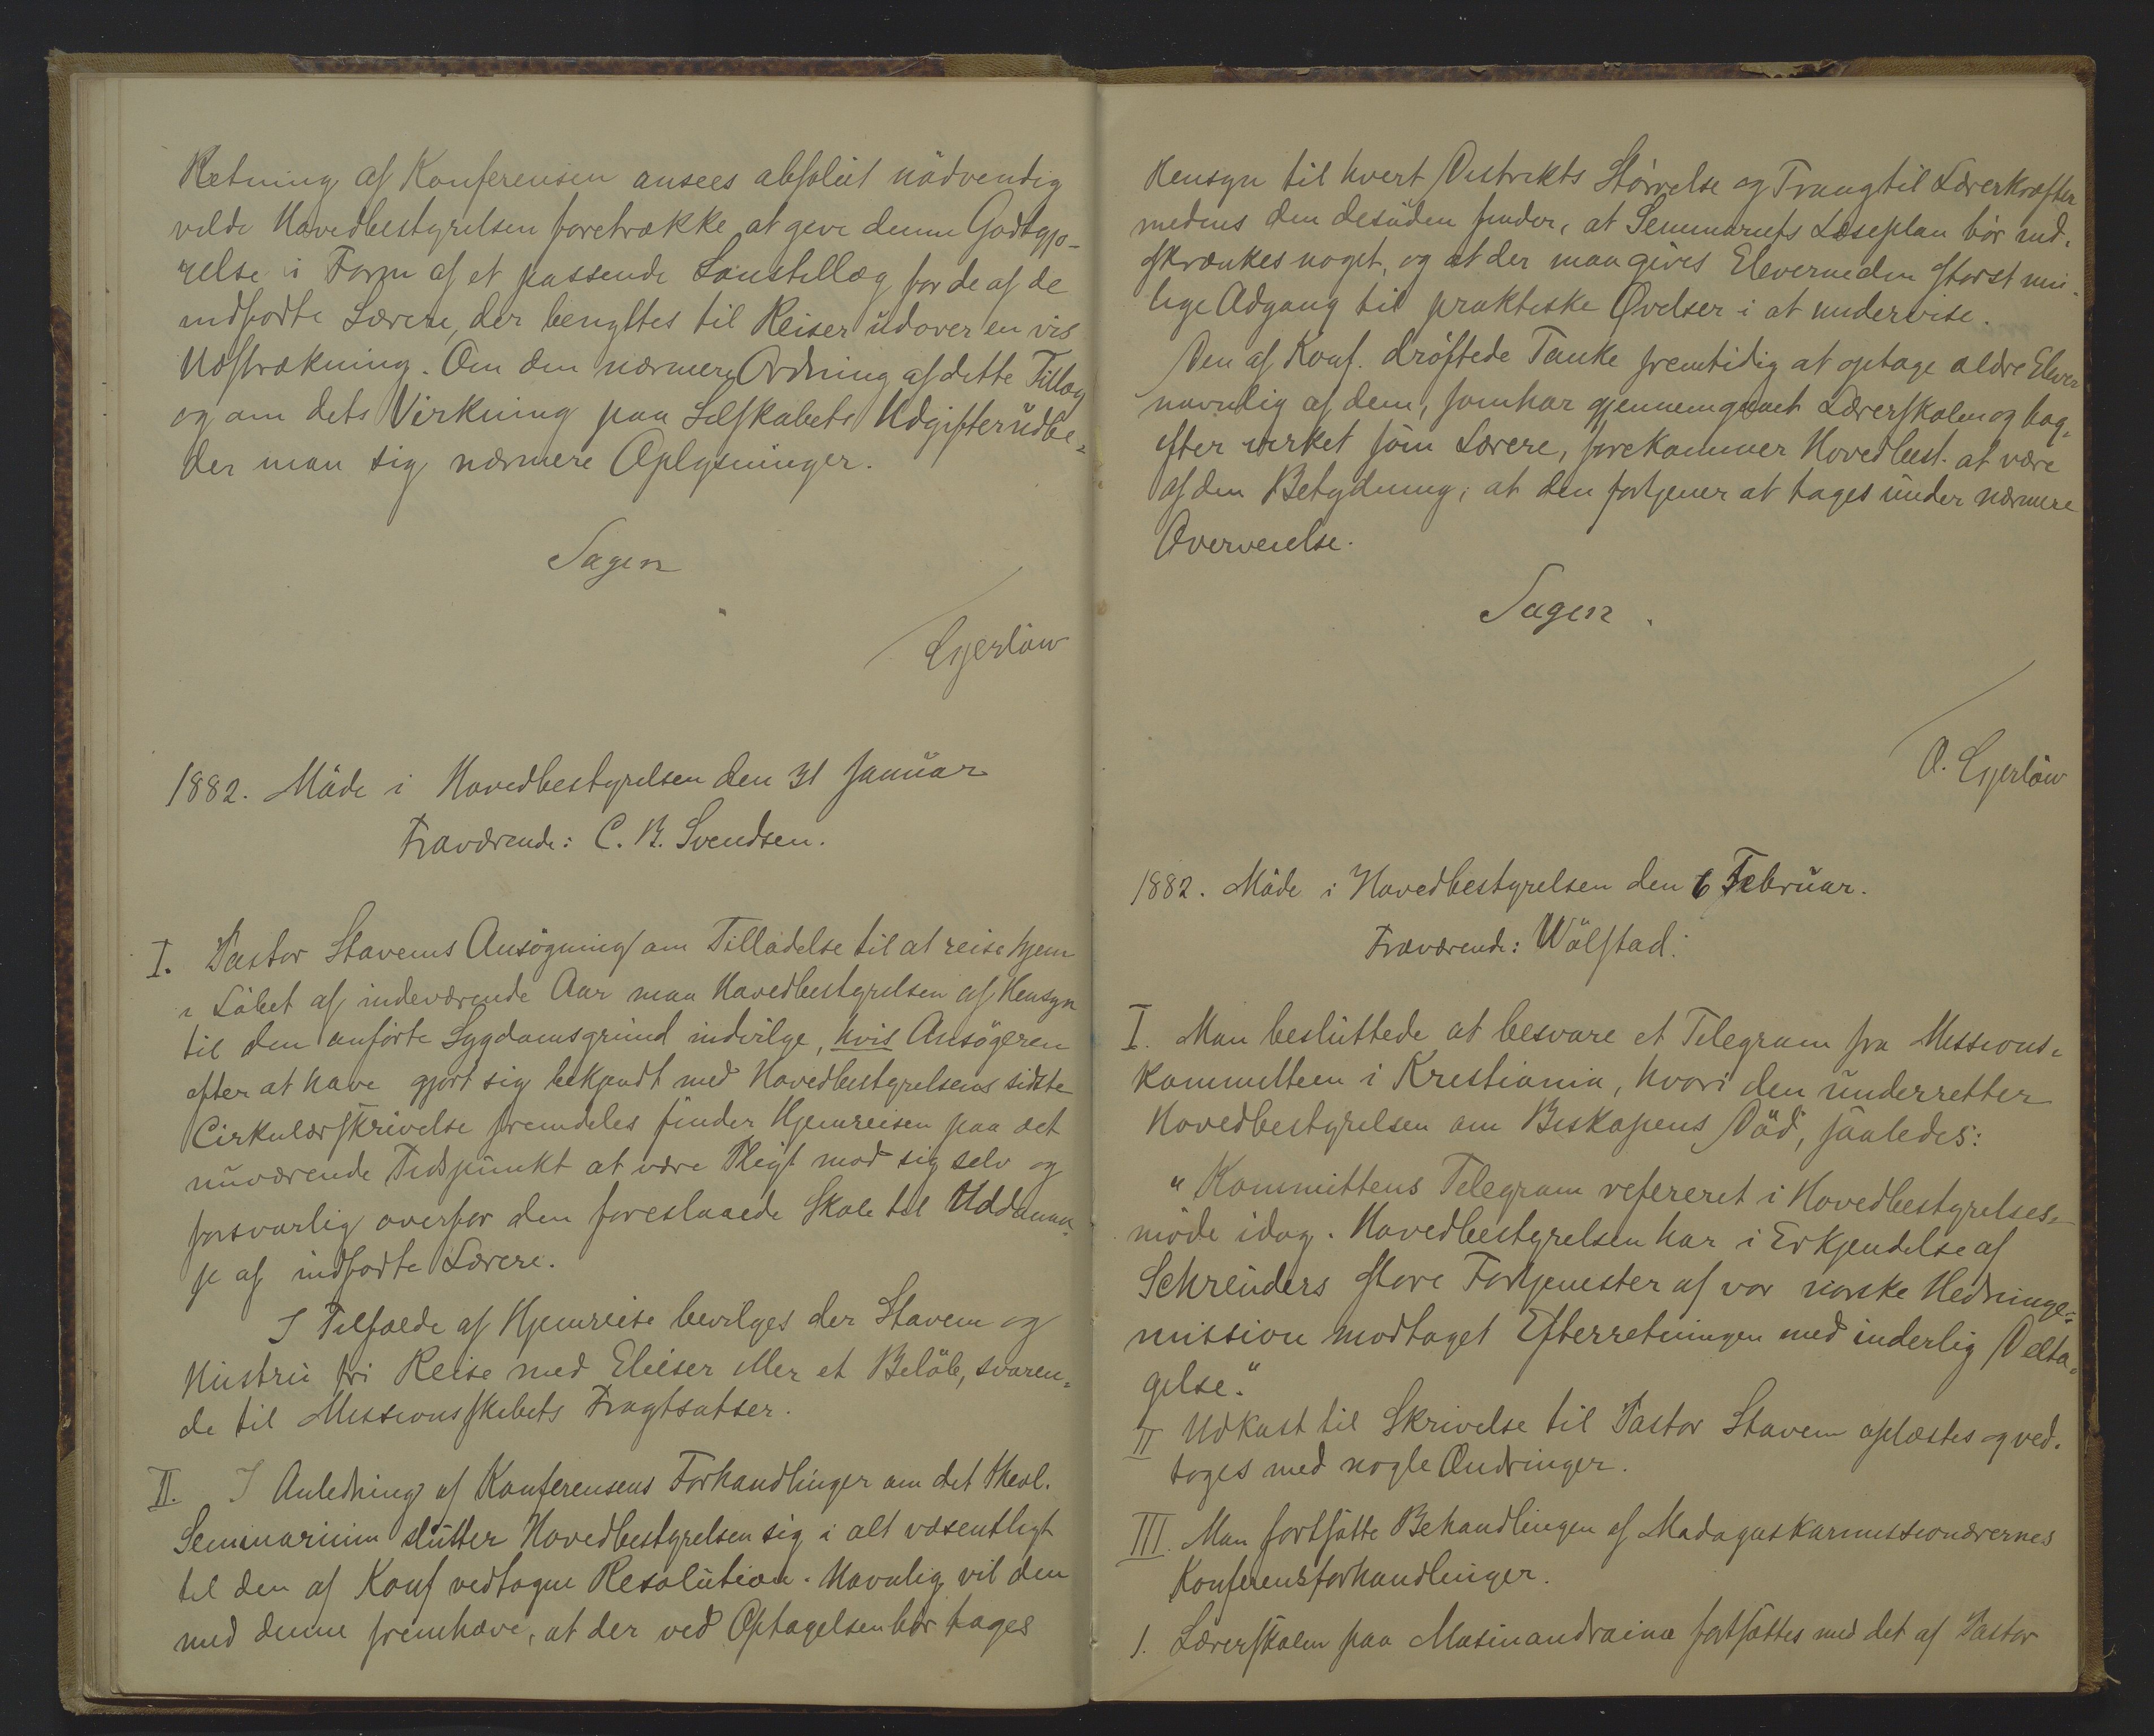 Retning af Konferensen ansees absolut nödvendig
vilde Hovedbestyrelsen foretrække at give denne Godtgjø-
relse i Form af et passende Lønstillæg for de af de
indfødte Lærere, der benyttes til Reiser udover en vis
Udstrækning. Om den nærmere Ordning af dette Tillæg
og om dets Virkning paa Selskabets Udgifter udbe-
der man sig nærmere Oplysninger.
Sagen
Gjerløw
1882. Möde i Hovedbestyrelsen den 31 Januar
Fraværende: C. B. Svendsen.
I. Pastor Stavems Ansögning om Tilladelse til at reise hjem
i Löbet af indeværende Aar maa Hovedbestyrelsen af Hensyn
til den anførte Sygdomsgrund indvilge, hvis Ansögeren
efter at have gjort sig bekjendt med Hovedbestyrelsens sidste
Cirkulærskrivelse fremdeles finder Hjemreisen paa det
nuværende Tidspunkt at være Pligt mod sig selv og
forsvarlig overfor den foreslaaede Skole til Uddannel-
se af indfødte Lærere.
I Tilfælde af Hjemreise bevilges der Stavem og
Hustru fri Reise med Elieser eller et Belöb, svaren-
de til Missionsskibets Fragtsatser.
II. I Anledning af Konferensens Forhandlinger om det theol.
Seminarium slutter Hovedbestyrelsen sig i alt væsentligt
til den af Konf vedtagne Resolution. Navnlig vil den
med denne fremhæve, at der ved Optagelsen bör tages
Hensyn til hvert Distrikts Störrelse og Trang til Lærerkræfter
medens den desuden finder, at Seminariets Læseplan bör ind-
skrænkes noget, og at der maa gives Eleverne den störst mu-
lige Adgang til praktiske Øvelser i at undervise.
Den af Konf. dröftede Tanke fremtidig at optage ældre Elever
navnlig af dem, som har gjennemgaaet Lærerskolen og bag-
efter virket som Lærere, forekommer Hovedbest. at være
af den Betydning, at den fortjener at tages under nærmere
Overveielse.
Sagen.
O. Gjerløw
1882. Möde i Hovedbestyrelsen den 6 Februar.
Fraværende: Wölstad.
I. Man besluttede at besvare et Telegram fra Missions-
kommitteen i Kristiania, hvori den underretter
Hovedbestyrelsen om Biskopens Död, saaledes:
"Kommittens Telegram refereret i Hovedbestyrelses-
möde idag. Hovedbestyrelsen har i Erkjendelse af
Schreuders store Fortjenester af vor norske Hedninge-
mission modtaget Efterretningen med inderlig Delta-
gelse."
II Udkast til Skrivelse til Pastor Stavem oplæstes og ved-
toges med nogle Ændringer.
III. Man fortsatte Behandlingen af Madagaskarmissionærernes
Konferensforhandlinger.
1. Lærerskolen paa Masinandraina fortsættes med det af Pastor